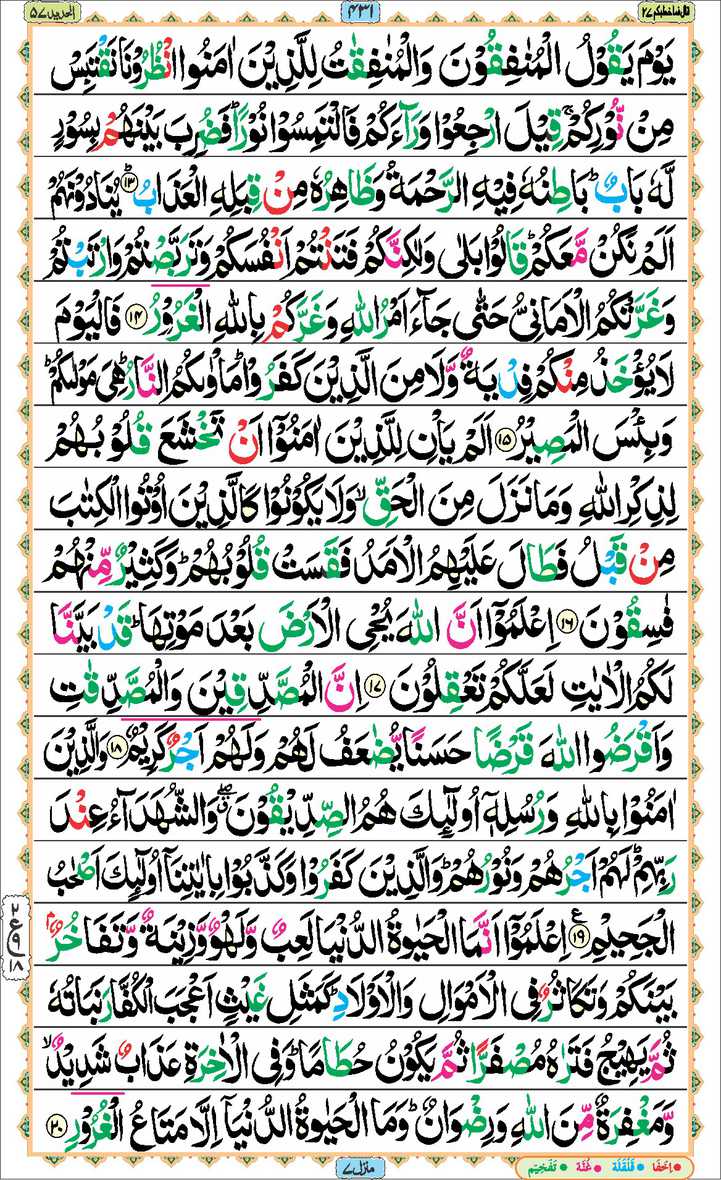 قال فما خطبكم ٢٧
٤٣١
الحديد ٥٧
يَوْمَ يَقُوْلُ الْمُنٰفِقُوْنَ وَالْمُنٰفِقٰتُ لِلَّذِيْنَ اٰمَنُوا انْظُرُوْنَا نَقْتَبِسْ
مِنْ نُّوْرِكُمْ ۚ قِيْلَ ارْجِعُوْا وَرَآءَكُمْ فَالْتَمِسُوْا نُوْرًا ؕ فَضُرِبَ بَيْنَهُمْ بِسُوْرٍ
لَّهٗ بَابٌ ؕ بَاطِنُهٗ فِيْهِ الرَّحْمَةُ وَظَاهِرُهٗ مِنْ قِبَلِهِ الْعَذَابُ ؕ ۱۳ يُنَادُوْنَهُمْ
اَلَمْ نَكُنْ مَّعَكُمْ ؕ قَالُوْا بَلٰى وَلٰكِنَّكُمْ فَتَنْتُمْ اَنْفُسَكُمْ وَتَرَبَّصْتُمْ وَارْتَبْتُمْ
وَغَرَّتْكُمُ الْاَمَانِىُّ حَتّٰى جَآءَ اَمْرُ اللّٰهِ وَغَرَّكُمْ بِاللّٰهِ الْغَرُوْرُ ۱۴ فَالْيَوْمَ
لَا يُؤْخَذُ مِنْكُمْ فِدْيَةٌ وَّلَا مِنَ الَّذِيْنَ كَفَرُوْا ؕ مَاْوٰىكُمُ النَّارُ ؕ هِىَ مَوْلٰىكُمْ ؕ
وَبِئْسَ الْمَصِيْرُ ۱۵ اَلَمْ يَاْنِ لِلَّذِيْنَ اٰمَنُوْۤا اَنْ تَخْشَعَ قُلُوْبُهُمْ
لِذِكْرِ اللّٰهِ وَمَا نَزَلَ مِنَ الْحَقِّ ۙ وَلَا يَكُوْنُوْا كَالَّذِيْنَ اُوْتُوا الْكِتٰبَ
مِنْ قَبْلُ فَطَالَ عَلَيْهِمُ الْاَمَدُ فَقَسَتْ قُلُوْبُهُمْ ؕ وَكَثِيْرٌ مِّنْهُمْ
فٰسِقُوْنَ ۱۶ اِعْلَمُوْۤا اَنَّ اللّٰهَ يُحْىِ الْاَرْضَ بَعْدَ مَوْتِهَا ؕ قَدْ بَيَّنَّا
لَكُمُ الْاٰيٰتِ لَعَلَّكُمْ تَعْقِلُوْنَ ۱۷ اِنَّ الْمُصَّدِّقِيْنَ وَالْمُصَّدِّقٰتِ
وَاَقْرَضُوا اللّٰهَ قَرْضًا حَسَنًا يُّضٰعَفُ لَهُمْ وَلَهُمْ اَجْرٌ كَرِيْمٌ ۱۸ وَالَّذِيْنَ
اٰمَنُوْا بِاللّٰهِ وَرُسُلِهٖۤ اُولٰٓئِكَ هُمُ الصِّدِّيْقُوْنَ ۖ وَالشُّهَدَآءُ عِنْدَ
رَبِّهِمْ ؕ لَهُمْ اَجْرُهُمْ وَنُوْرُهُمْ ؕ وَالَّذِيْنَ كَفَرُوْا وَكَذَّبُوْا بِاٰيٰتِنَاۤ اُولٰٓئِكَ اَصْحٰبُ
الْجَحِيْمِ ۱۹ اِعْلَمُوْۤا اَنَّمَا الْحَيٰوةُ الدُّنْيَا لَعِبٌ وَّلَهْوٌ وَّزِيْنَةٌ وَّتَفَاخُرٌۢ
بَيْنَكُمْ وَتَكَاثُرٌ فِى الْاَمْوَالِ وَالْاَوْلَادِ ؕ كَمَثَلِ غَيْثٍ اَعْجَبَ الْكُفَّارَ نَبَاتُهٗ
ثُمَّ يَهِيْجُ فَتَرٰىهُ مُصْفَرًّا ثُمَّ يَكُوْنُ حُطَامًا ؕ وَفِى الْاٰخِرَةِ عَذَابٌ شَدِيْدٌ ۙ
وَّمَغْفِرَةٌ مِّنَ اللّٰهِ وَرِضْوَانٌ ؕ وَمَا الْحَيٰوةُ الدُّنْيَاۤ اِلَّا مَتَاعُ الْغُرُوْرِ ۲۰
٢
ع ٩
١٨
منزل ٧
اخفا قلقله غنه تفخيم